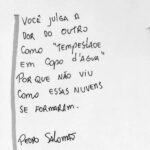 VOCÊ JULGA A
DOR DO OUTRO
COMO "TEMPESTADE
EM COPO D'ÁGUA"
PORQUE NÃO VIU
COMO ESSAS NUVENS
SE FORMARAM.
PEDRO SALOMÃO